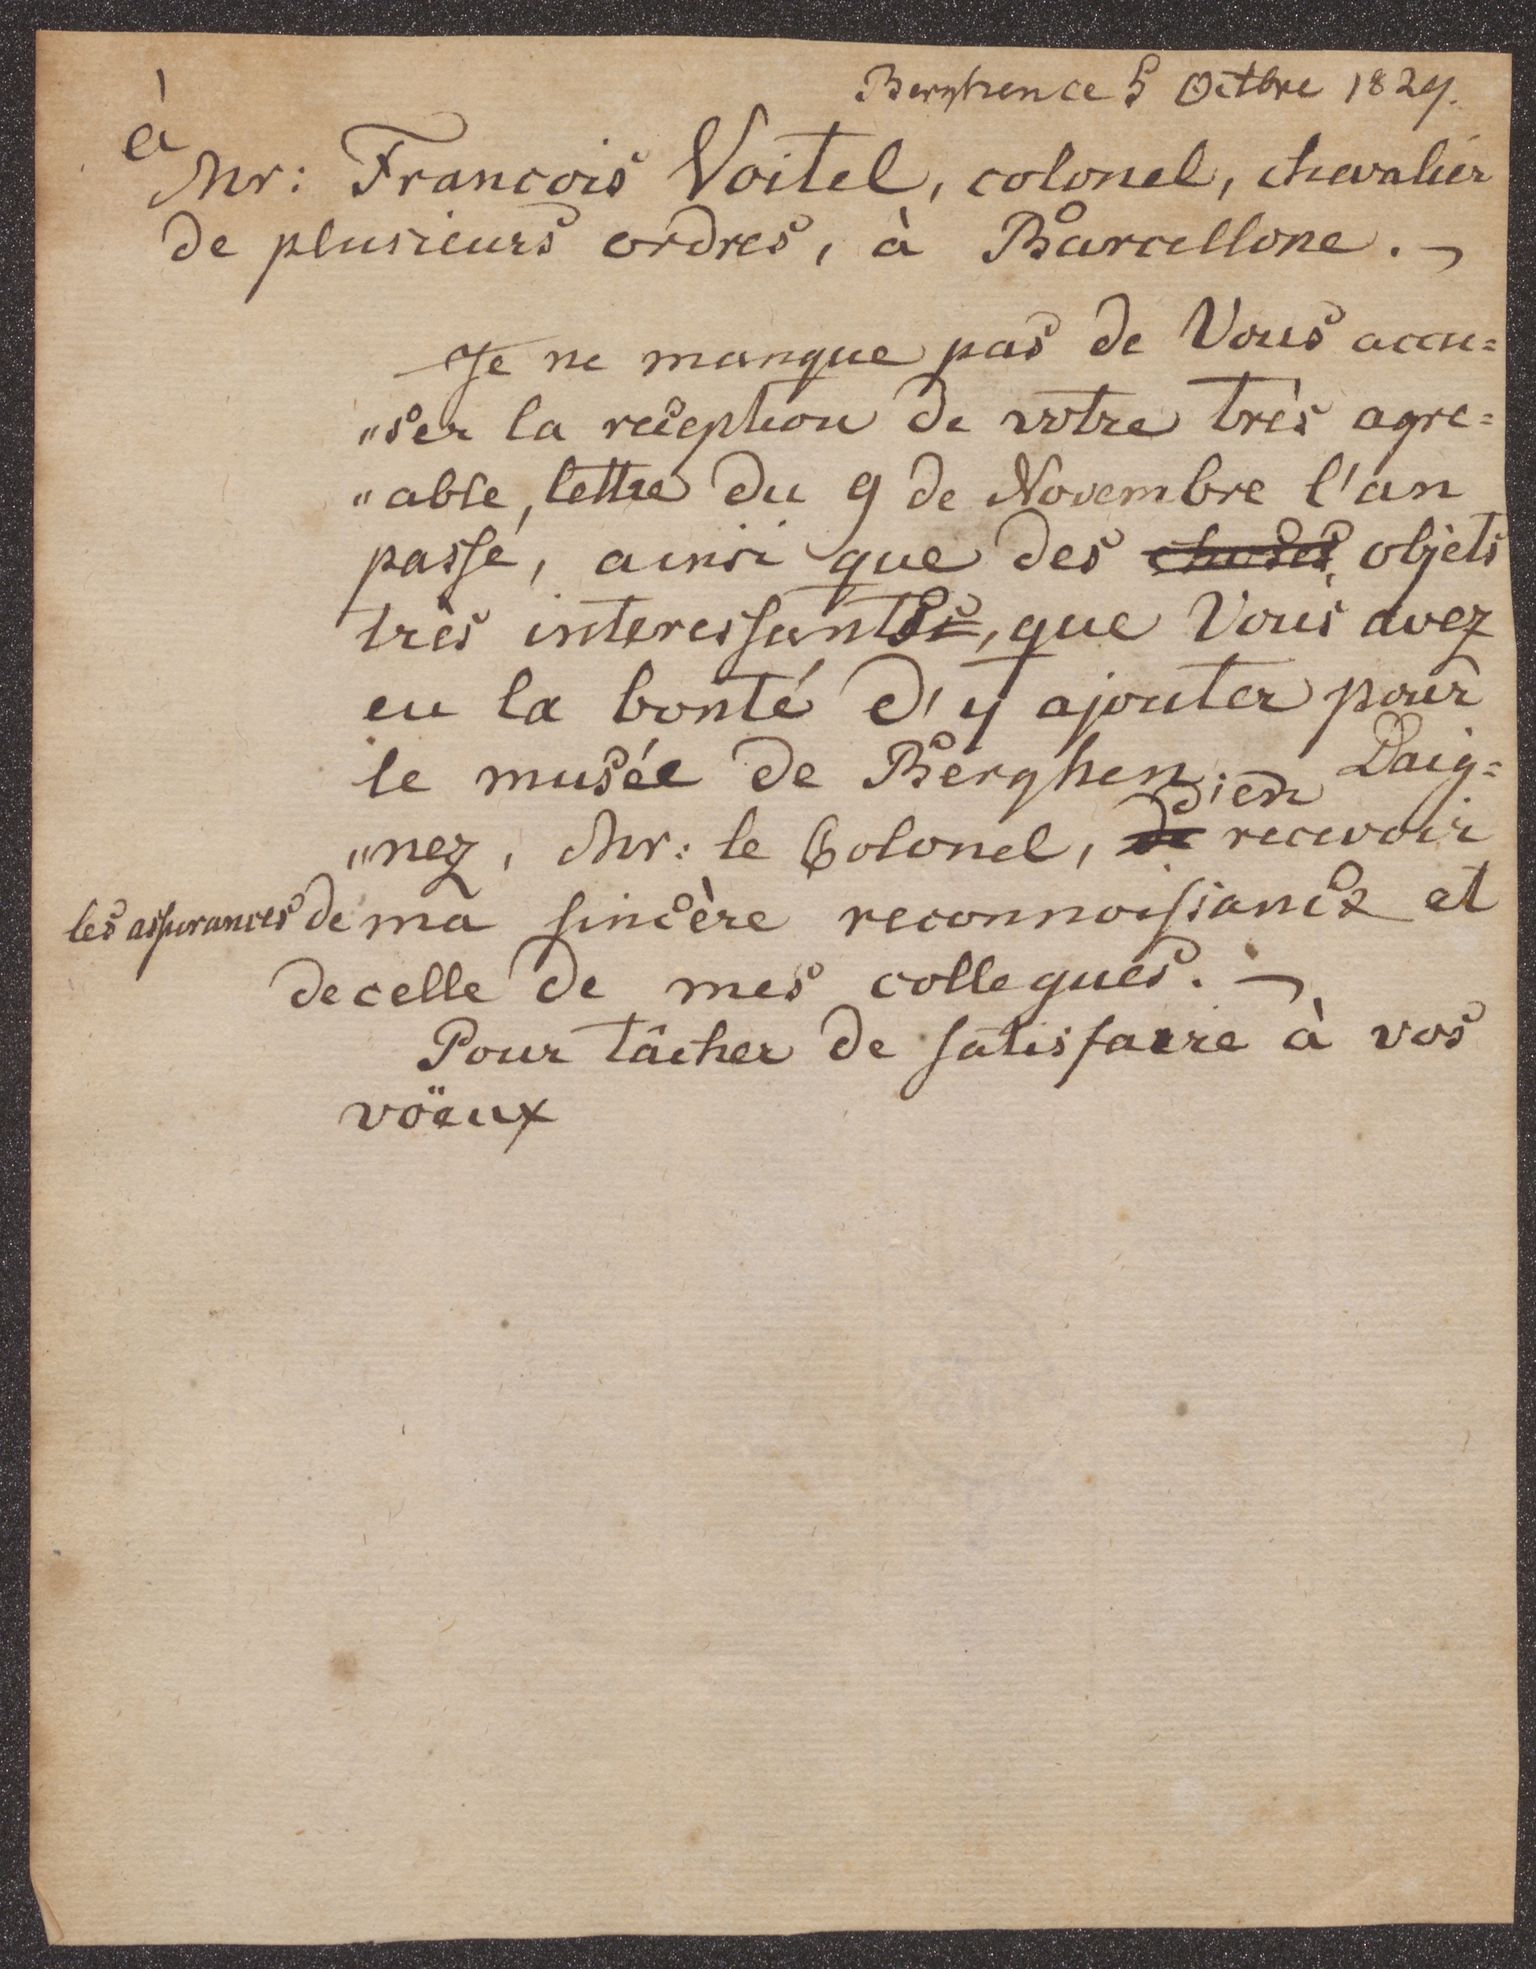 Berghen ce 5 Octbre 1829.
à
Mr: Francois Voitel, colonel, chevalier
de plusieurs ordres, à Barcellone. ¬
Je ne manque pas de Vous accu=
"ser la reception de votre très agre=
"able, lettre du 9 de Novembre l'an
passé, ainsi que des choses, objets
très interessants, que Vous avez
eu la bonté d'y ajouter pour
le musée de Berghen. Daig=
d'en
"nez, Mr: le Colonel, de recevoir
les assurances de ma sincère reconnoissance et
de celle de mes collegues. ¬
Pour tâcher de satisfaire à vos
vöeux